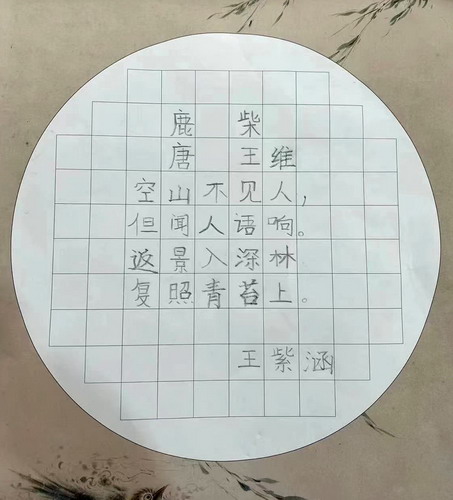 鹿柴
唐 王维
空山不见人，
但闻人语响。
返景入深林
复照青苔上。
王紫涵